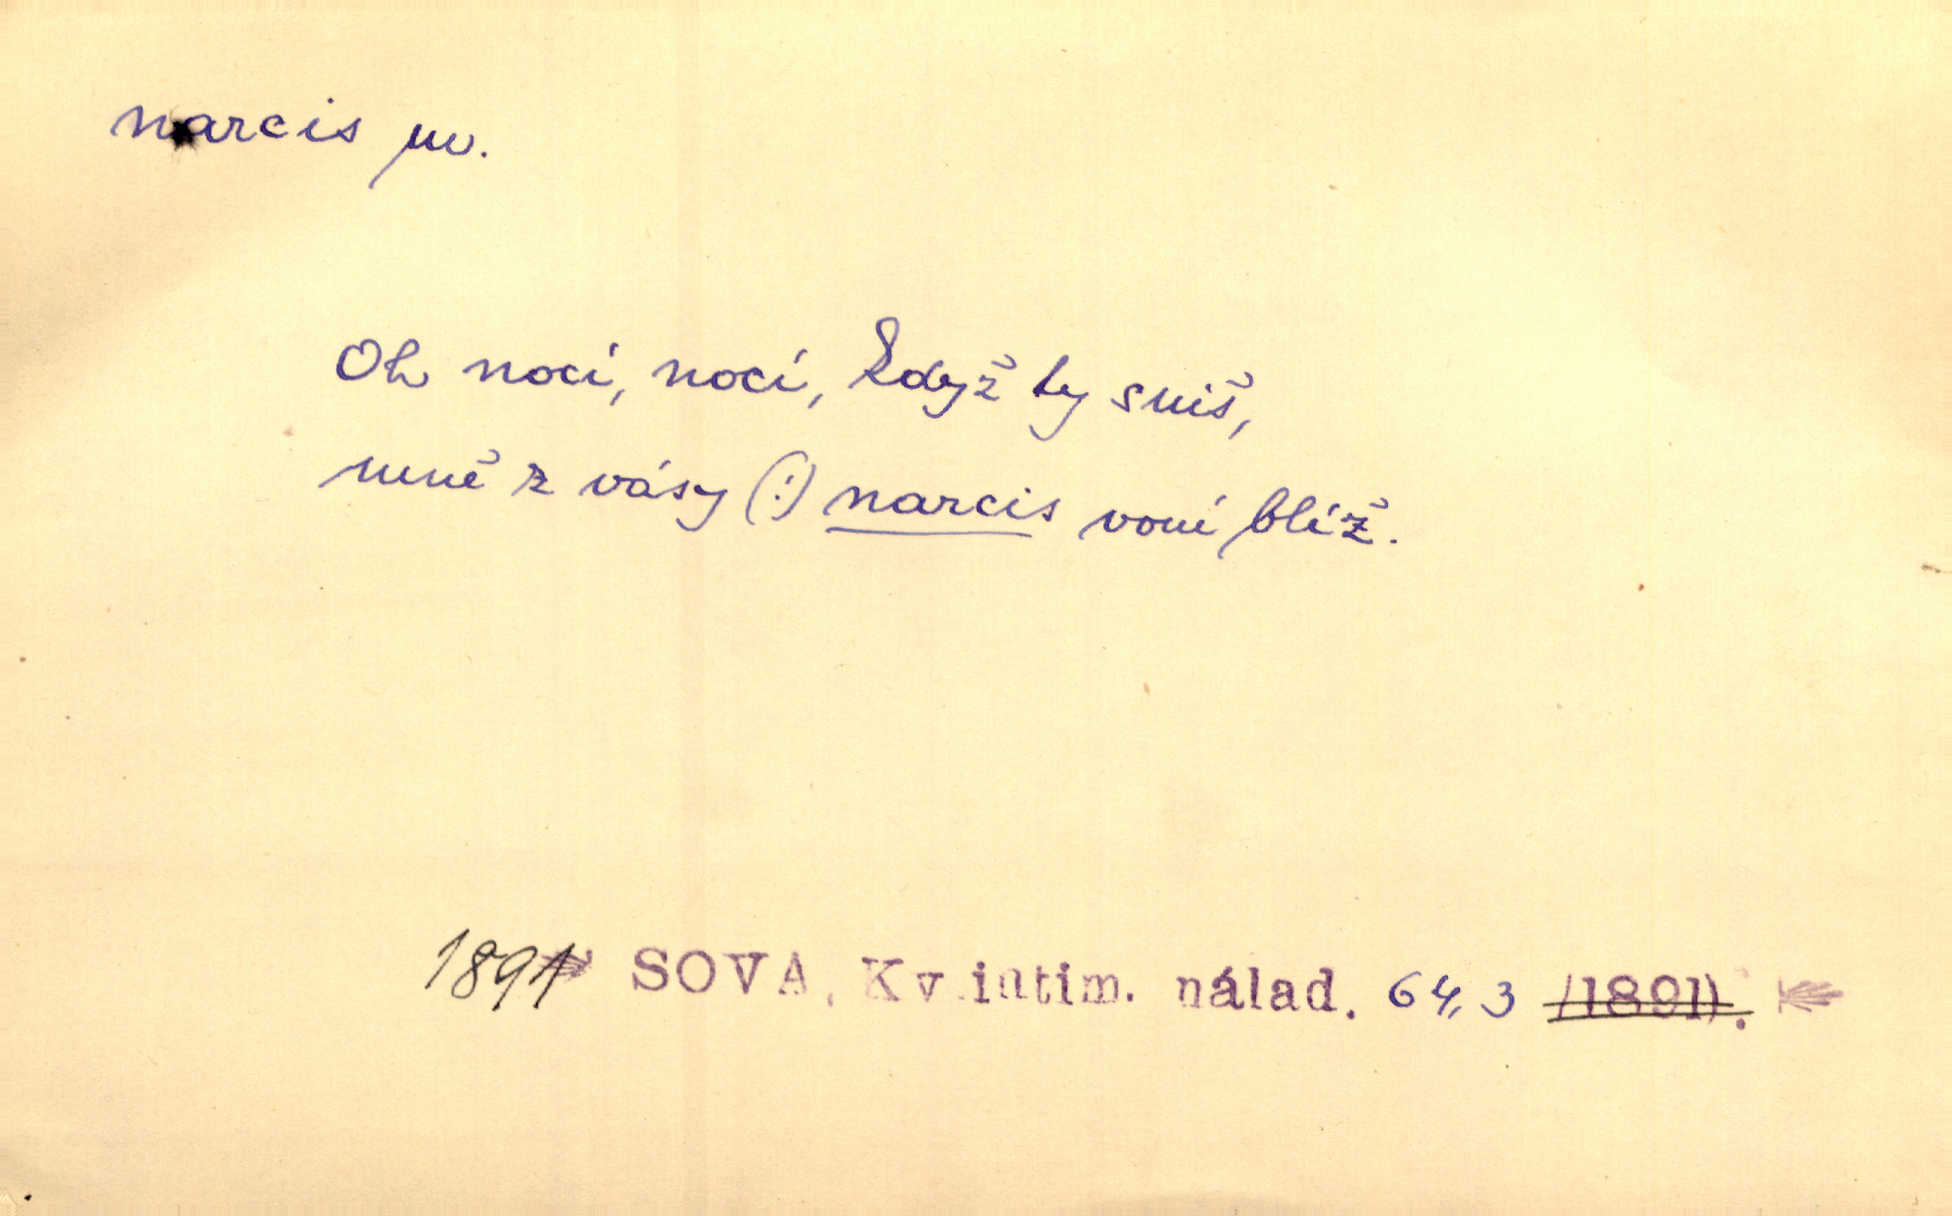 narcis m.
Oh noci, noci, když ty sníš,
mně z vásy (!) narcis voní blíž.
1891 SOVA, Kv.intim. nálad. 64, 3 (1891).